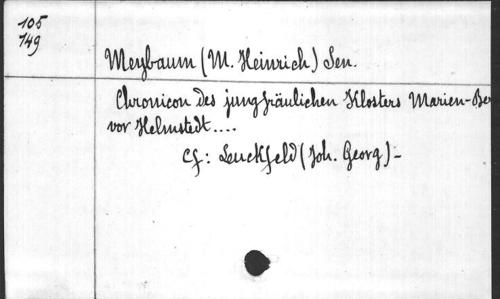 105
149
Meybaum (M. Heinrich) Sen.
Chronicon des jungfräulichen Klosters Marien-Ber
vor Helmstedt....
Cf: Leuckfeld (Joh. Georg) -